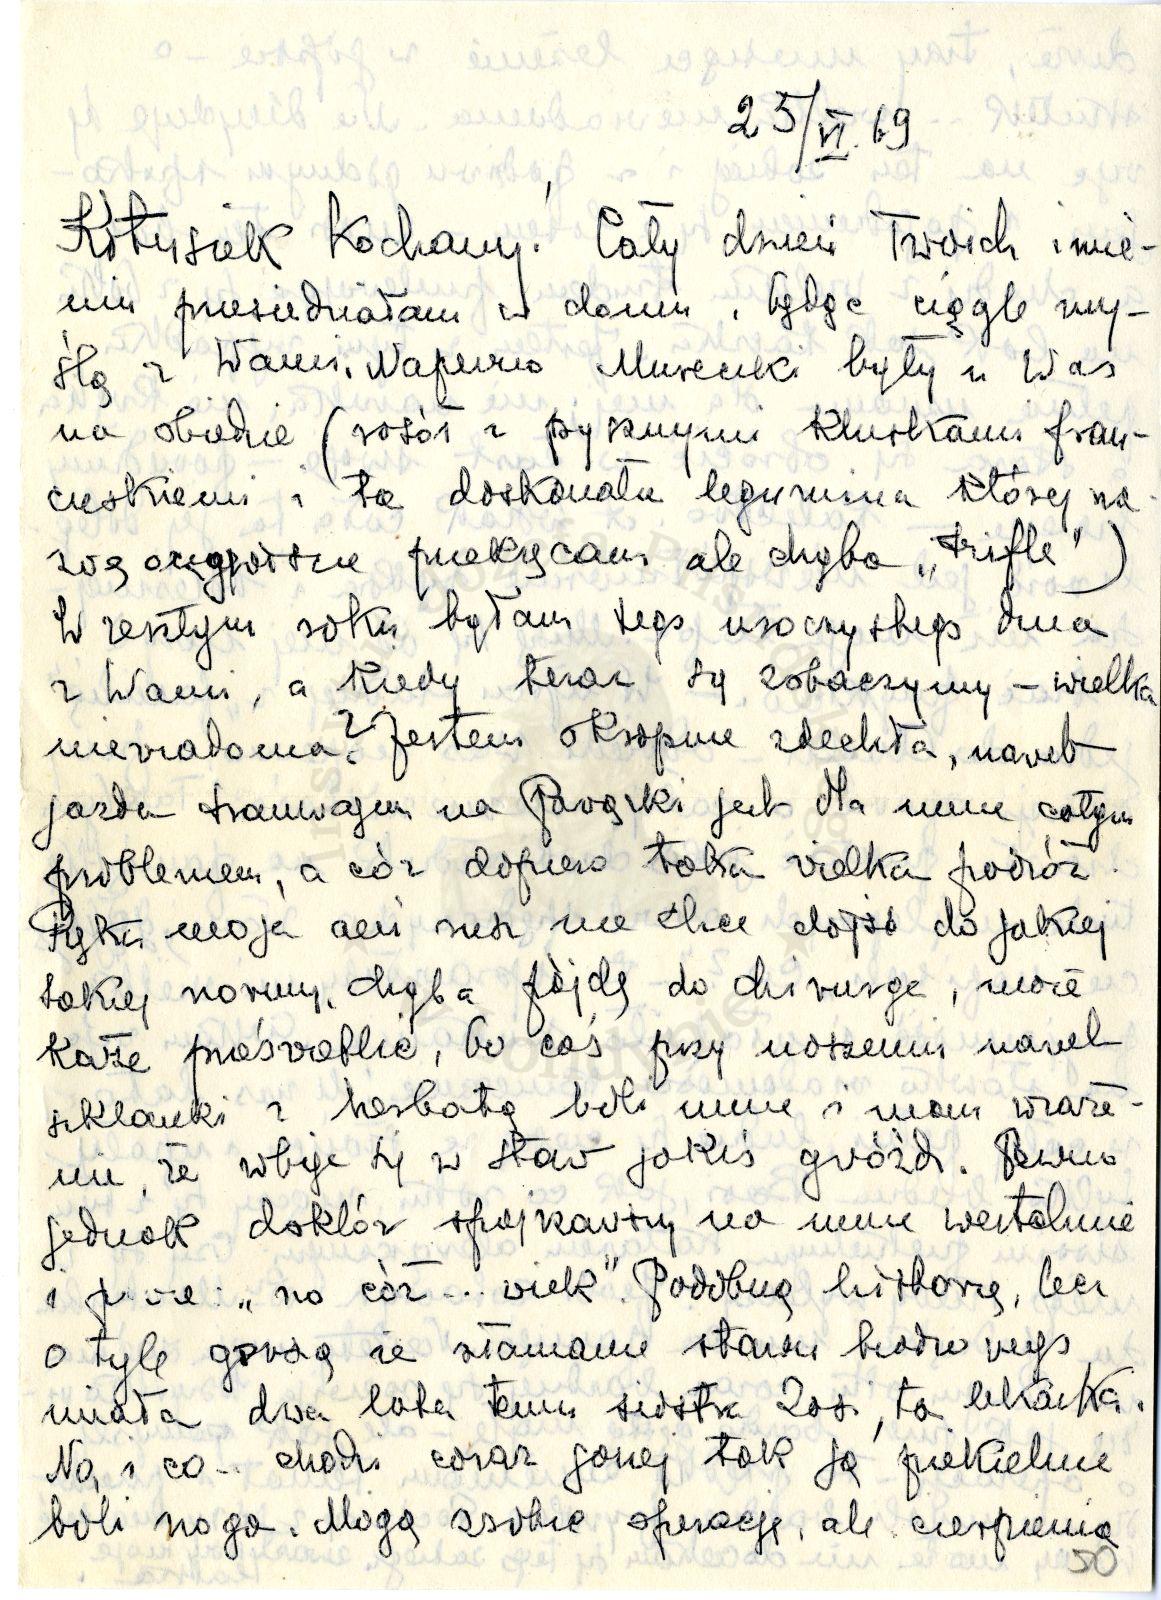 25/VI.69
Kotusiek Kochany! Cały dzień Twoich imie-
nin przesiedziałam w domu, będąc ciągle my-
ślą z Wami. Napewno Museńki były u Was
na obiedzie (rosół z pysznymi kluskami fran-
cuskiemi i ta doskonała legumina której na
zwę przekręcam ale chyba „trifle")
W zeszłym roku byłam tego uroczystego dnia
z Wami, a kiedy teraz się zobaczymy – wielka
niewiadoma? Jestem okropnie zdechła, nawet
jazda tramwajem na Powązki jest dla mnie całym
problemem, a cóż dopiero taka wielka podróż.
Ręka moja ani rusz nie chce dojść do jakiej
takiej normy, chyba pójdę do chirurga, może
każe prześwietlić, bo coś przy noszeniu nawet
szklanki z herbatą boli mnie i mam wraże-
nie, że wbija się w staw jakiś gwóźdź. Pewno
jednak doktór spojrzawszy na mnie westchnie
i powie: „no cóż... wiek". Podobną historię, lecz
o tyle gorszą że złamanie stawu biodrowego
miała dwa lata temu siostra Zosi, ta lekarka.
No, i co... chodzi coraz gorzej tak ją piekielnie
boli noga. Mogą zrobić operację, ale cierpienia
50